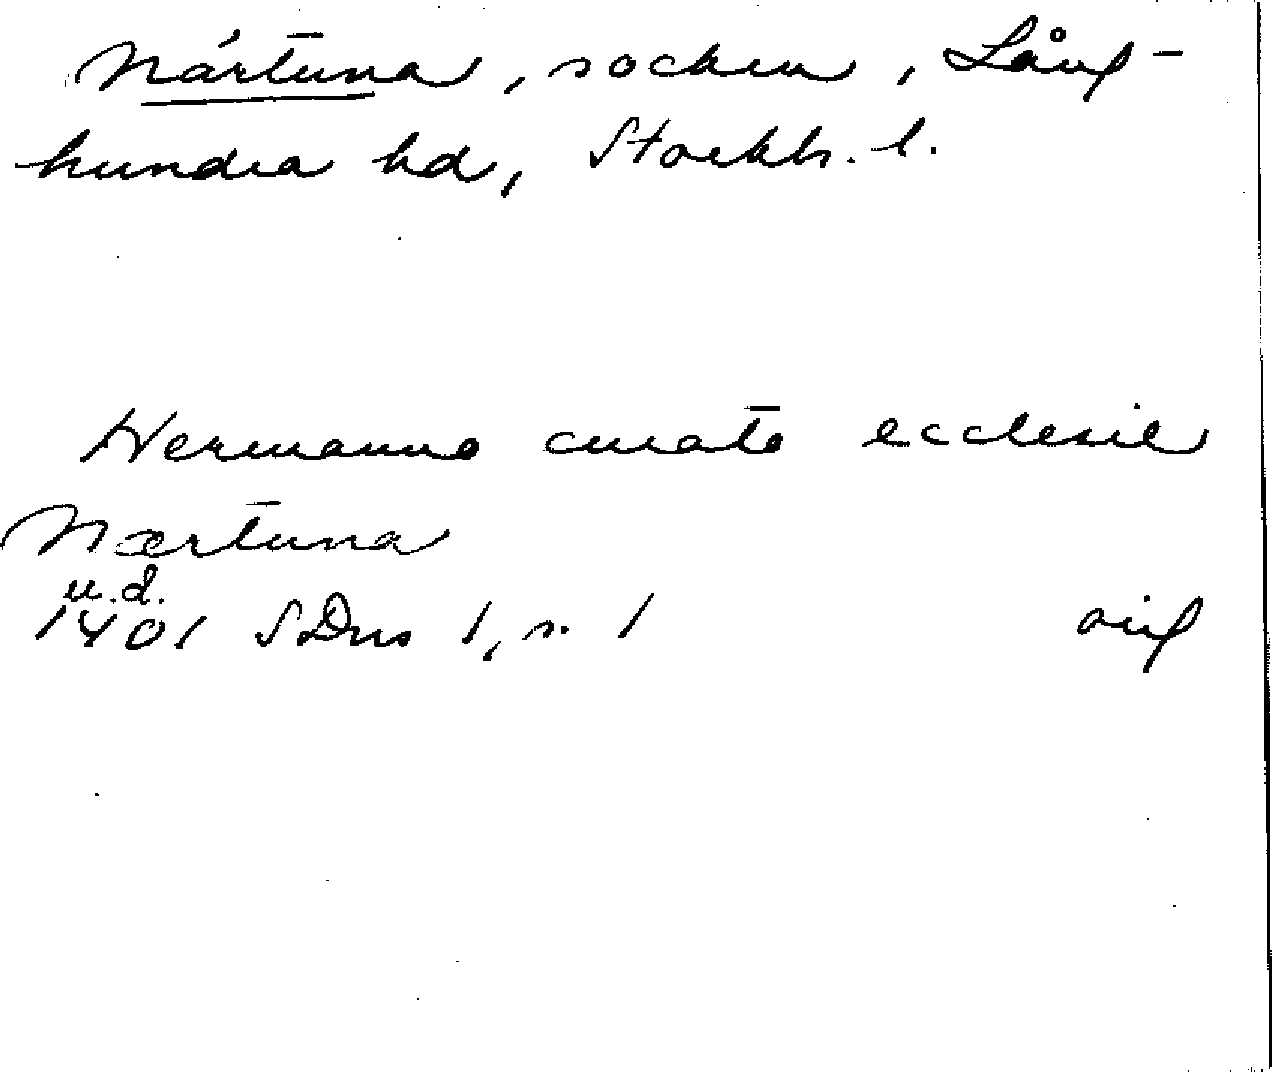 Närtuna, socken, Lång-
hundra hd, Stockh. l.
Hermanno curato ecclesie
Nærtuna
u.d.
1401 SDns 1, s. 1 orig